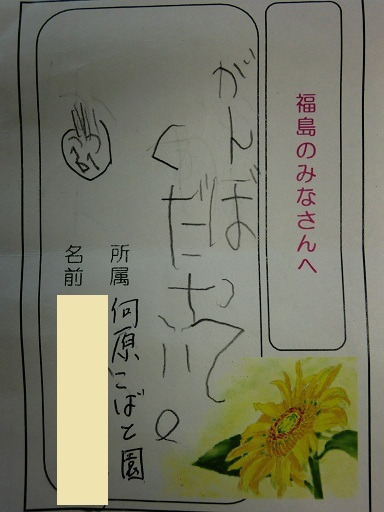 福島のみなさんへ
がんばって
ください。
所属 何原こばと園
名前